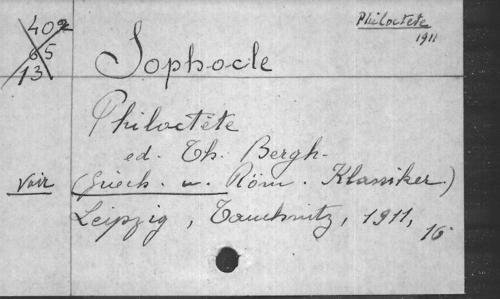 402
65
13
Philoctète
1911
Sophocle
Philoctète
ed. Th. Bergk.
Voir (Griech. u. Röm. Klassiker.)
Leipzig, Tauchnitz, 1911,
16°